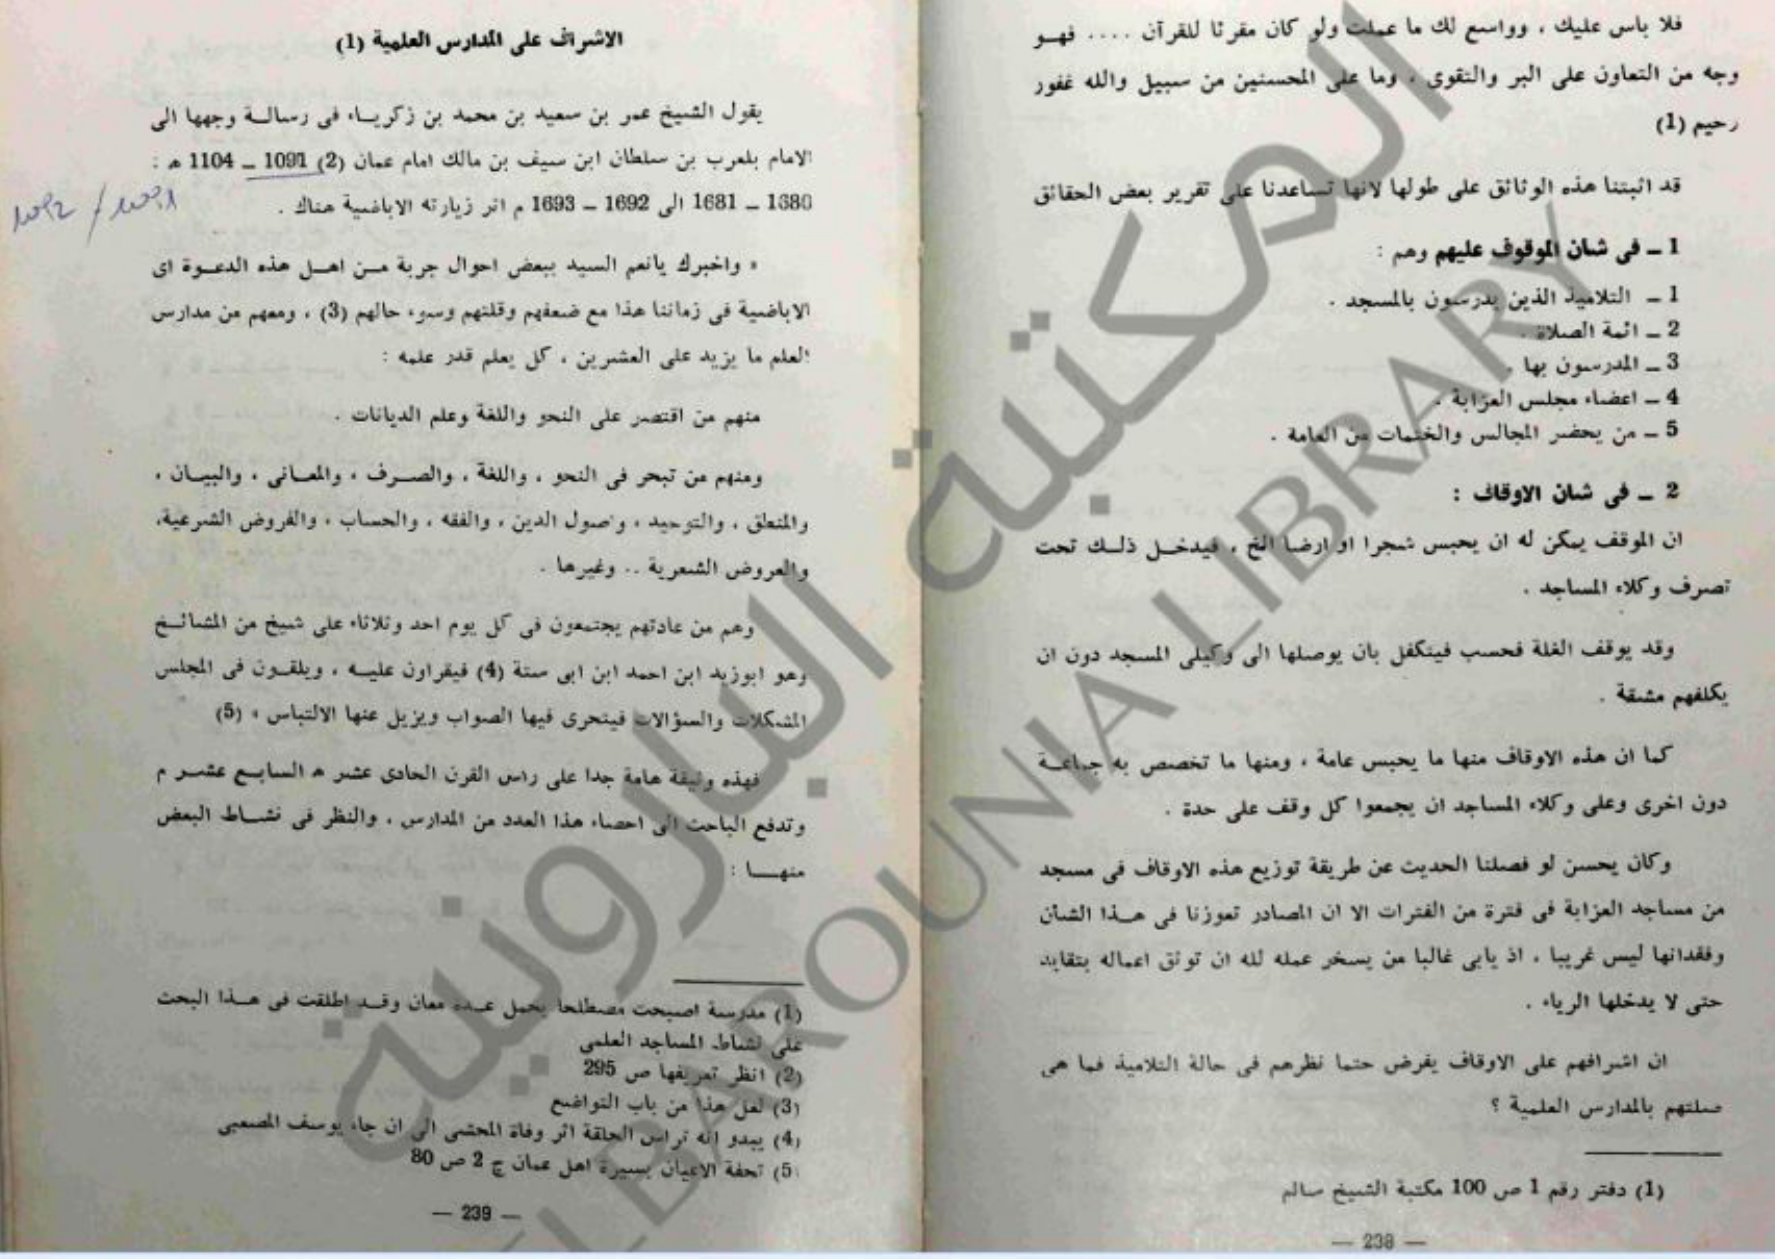 فلا باس عليك ، وواسع لك ما عملت ولو كان مقرئا للقرآن .... فهـو
وجه من التعاون على البر والتقوى ، وما على المحسنين من سبيل والله غفور
رحيم (1)
قد اثبتنا هذه الوثائق على طولها لانها تساعدنا على تقرير بعض الحقائق
1 ـ فى شان الموقوف عليهم وهم :
1 ـ التلاميذ الذين يدرسون بالمسجد .
2 ـ ائمة الصلاة .
3 ـ المدرسون بها .
4 ـ اعضاء مجلس العزابة .
5 ـ من يحضر المجالس والختمات من العامة .
2 ـ فى شان الاوقاف :
ان الموقف يمكن له ان يحبس شجرا او ارضا الخ ، فيدخـل ذلـك تحت
تصرف وكلاء المساجد .
وقد يوقف الغلة فحسب فيتكفل بان يوصلها الى وكيلى المسجد دون ان
يكلفهم مشقة .
كما ان هذه الاوقاف منها ما يحبس عامة ، ومنها ما تخصص به جماعـة
دون اخرى وعلى وكلاء المساجد ان يجمعوا كل وقف على حدة .
وكان يحسن لو فصلنا الحديث عن طريقة توزيع هذه الاوقاف فى مسجد
من مساجد العزابة فى فترة من الفترات الا ان المصادر تعوزنا فى هـذا الشأن
وفقدانها ليس غريبا ، اذ يابى غالبا من يسخر عمله لله ان توثق اعماله بتقايد
حتى لا يدخلها الرياء .
ان اشرافهم على الاوقاف يفرض حتما نظرهم فى حالة التلاميذ فما هى
صلتهم بالمدارس العلمية ؟
(1) دفتر رقم 1 ص 100 مكتبة الشيخ سالم
— 238 —
الاشراف على المدارس العلمية (1)
يقول الشيخ عمر بن سعيد بن محمد بن زكريـاء فى رسالـة وجهها الى
الامام بلعرب بن سلطان ابن سيف بن مالك امام عمان (2) 1091 ـ 1104 ه :
1680 ـ 1681 الى 1692 ـ 1693 م اثر زيارته الاباضية هناك .
« واخبرك يانعم السيد ببعض احوال جربة مـن اهـل هذه الدعـوة اى
الاباضية فى زماننا هذا مع ضعفهم وقلتهم وسوء حالهم (3) ، ومعهم من مدارس
العلم ما يزيد على العشرين ، كل يعلم قدر علمه :
منهم من اقتصر على النحو واللغة وعلم الديانات .
ومنهم من تبحر فى النحو ، واللغة ، والصـرف ، والمعـانى ، والبيـان ،
والمنطق ، والتوحيد ، واصول الدين ، والفقه ، والحساب ، والفروض الشرعية،
والعروض الشعرية .. وغيرها .
وهم من عادتهم يجتمعون فى كل يوم احد وثلاثاء على شيخ من المشائـخ
وهو ابوزيد ابن احمد ابن ابى ستة (4) فيقراون عليـه ، ويلقـون فى المجلس
المشكلات والسؤالات فيتحرى فيها الصواب ويزيل عنها الالتباس » (5)
فهذه وثيقة هامة جدا على راس القرن الحادى عشر ه السابـع عشـر م
وتدفع الباحث الى احصاء هذا العدد من المدارس ، والنظر فى نشـاط البعض
منهـــا :
(1) مدرسة اصبحت مصطلحا يحمل عـدة معان وقـد اطلقت فى هـذا البحث
على نشاط المساجد العلمى
(2) انظر تعريفها ص 295
(3) لعل هذا من باب التواضع
(4) يبدو انه تراس الحلقة اثر وفاة المحشى الى ان جاء يوسف المصعبى
(5) تحفة الاعيان بسيرة اهل عمان ج 2 ص 80
— 239 —
المكتبة البارونية
ELBAROUNIA LIBRARY